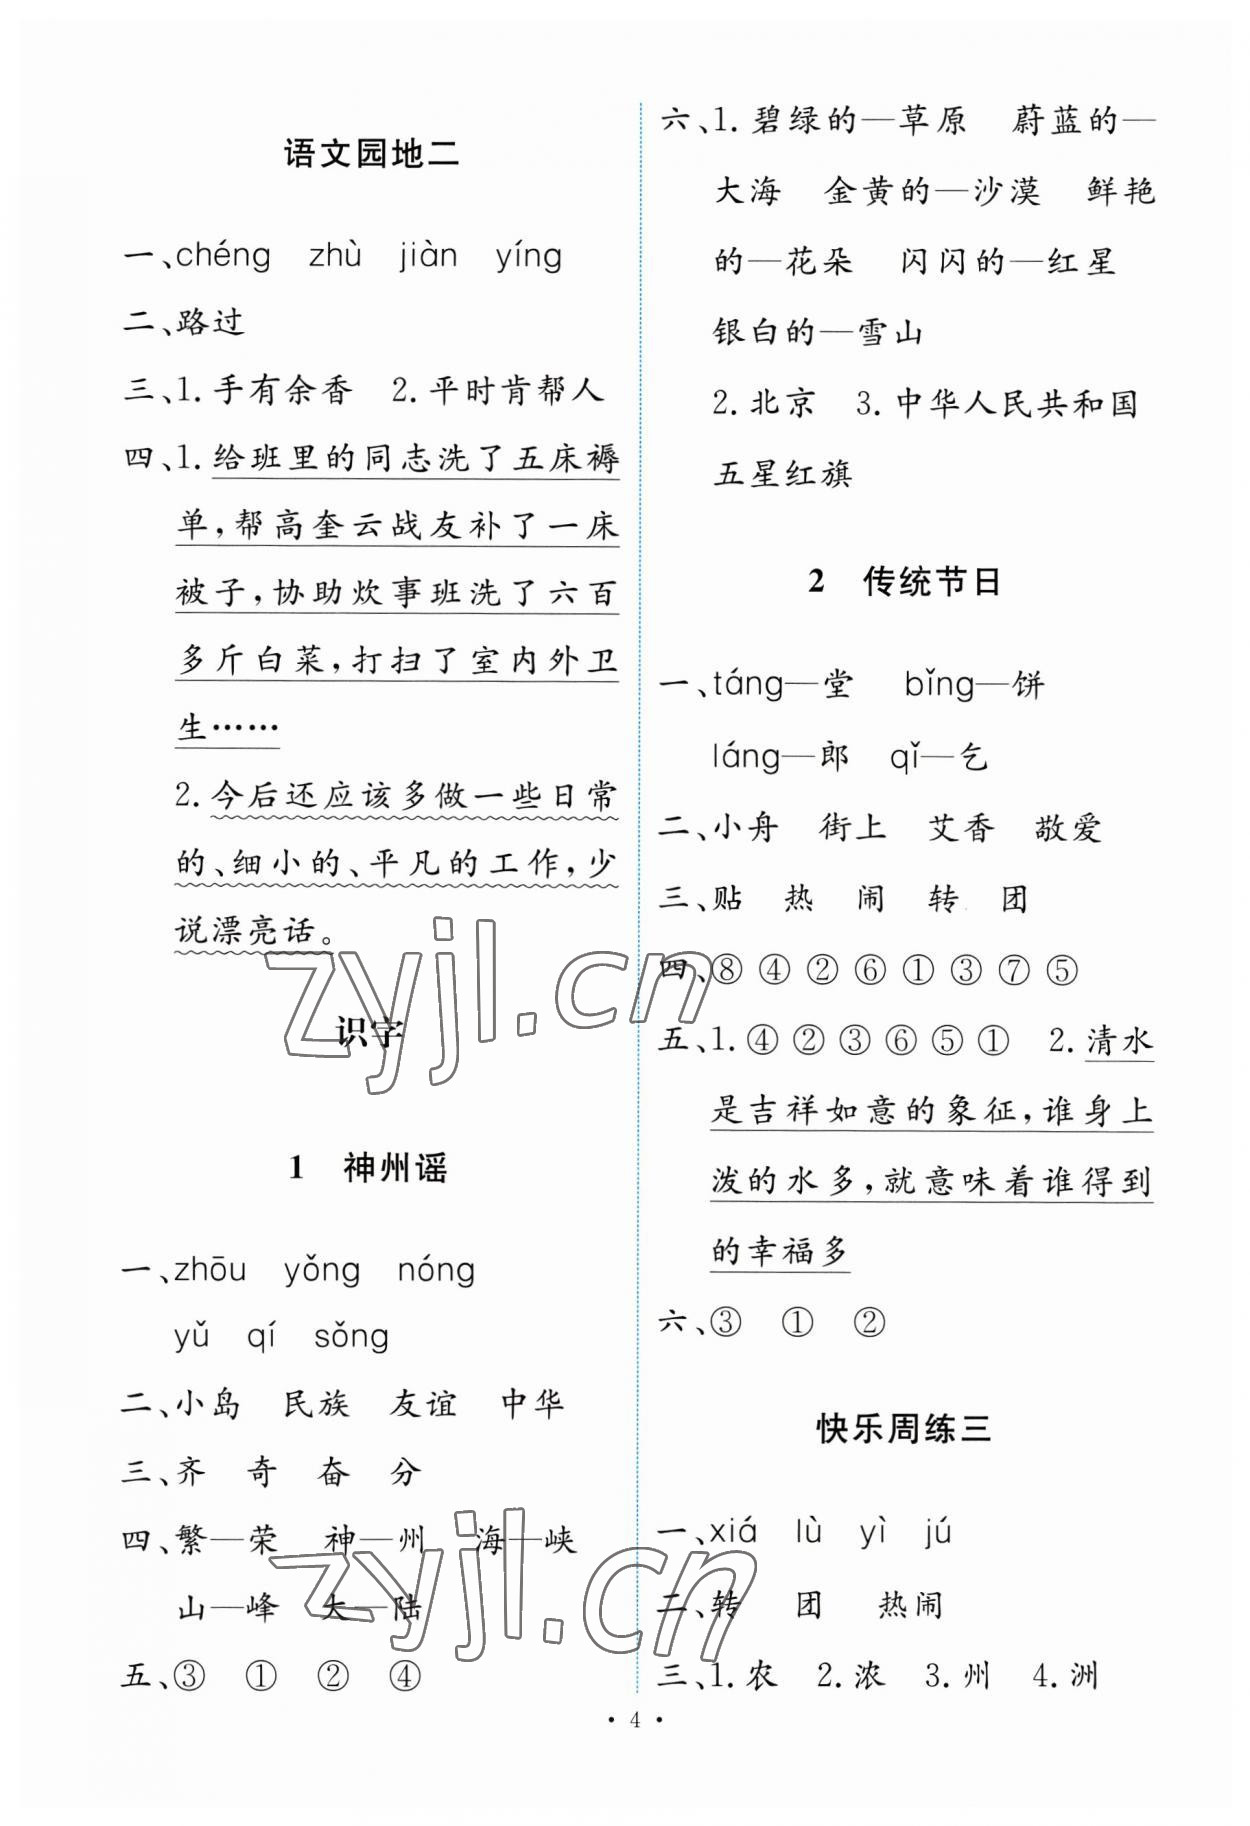 语文园地二
一、chéng zhù jiàn yíng
二、路过
三、1. 手有余香 2. 平时肯帮人
四、1. 给班里的同志洗了五床褥
单,帮高奎云战友补了一床
被子,协助炊事班洗了六百
多斤白菜,打扫了室内外卫
生……
2. 今后还应该多做一些日常
的、细小的、平凡的工作,少
说漂亮话。
识字
1 神州谣
一、zhōu yǒng nóng
yǔ qí sǒng
二、小岛 民族 友谊 中华
三、齐 奇 奋 分
四、繁—荣 神—州 海—峡
山—峰 大—陆
五、③ ① ② ④
六、1. 碧绿的—草原 蔚蓝的—
大海 金黄的—沙漠 鲜艳
的—花朵 闪闪的—红星
银白的—雪山
2. 北京 3. 中华人民共和国
五星红旗
2 传统节日
一、táng—堂 bǐng—饼
láng—郎 qǐ—乞
二、小舟 街上 艾香 敬爱
三、贴 热 闹 转 团
四、⑧ ④ ② ⑥ ① ③ ⑦ ⑤
五、1. ④ ② ③ ⑥ ⑤ ① 2. 清水
是吉祥如意的象征,谁身上
泼的水多,就意味着谁得到
的幸福多
六、③ ① ②
快乐周练三
一、xiá lù yì jú
二、转 团 热闹
三、1. 农 2. 浓 3. 州 4. 洲
· 4 ·
zyjl.cn
zyjl.cn